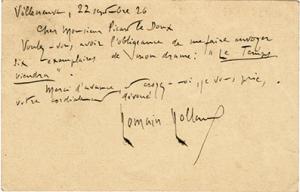 Villeneuve, 22 septembre 26
Cher Monsieur Picart le Doux
Voulez-vous, avoir l'obligeance de me faire envoyer
six exemplaires de mon drame: "Le Temps
viendra".
Merci d'avance, et croyez-moi, je vous prie,
votre cordialement dévoué
Romain Rolland